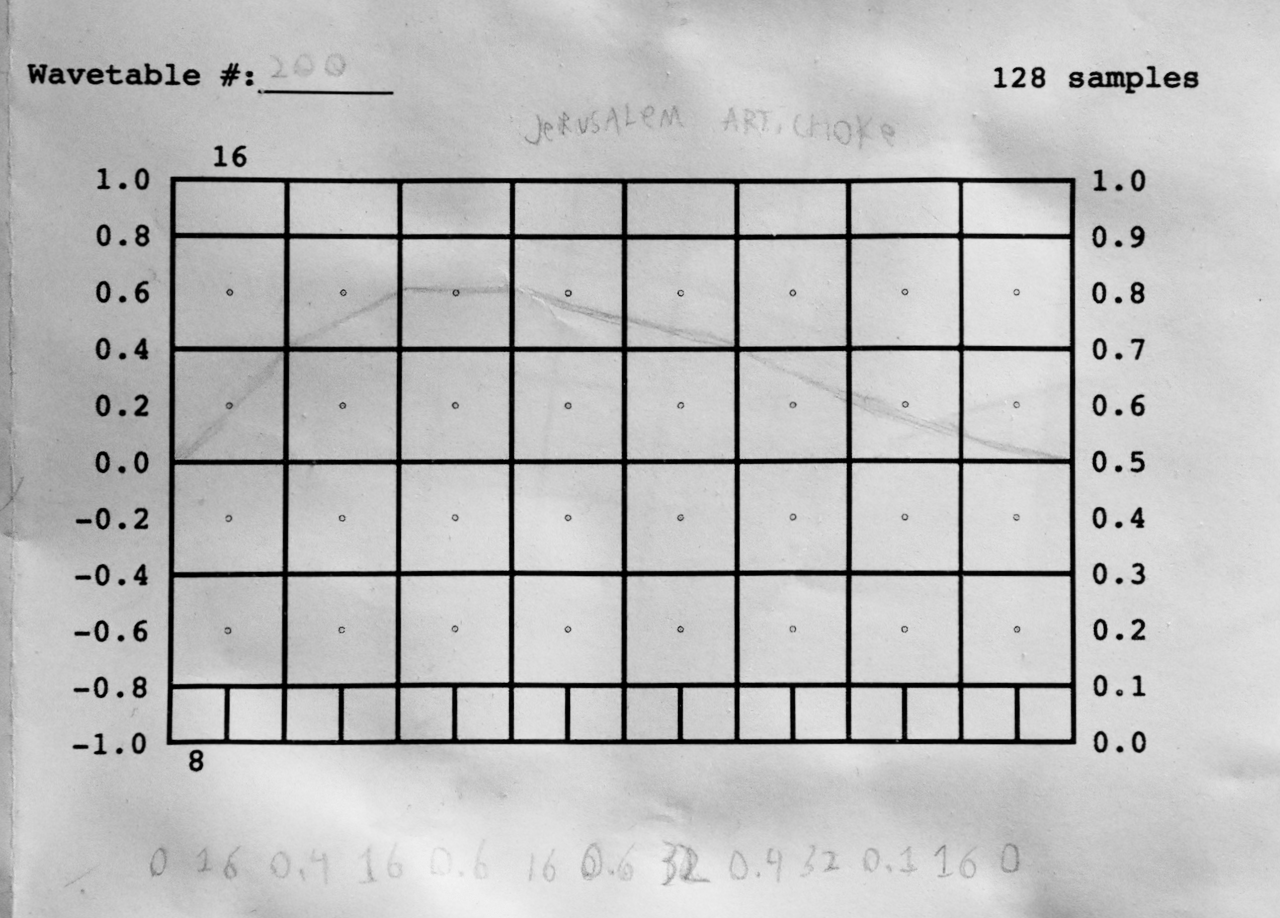 Wavetable #: 200 128 samples
JeRUSALeM ARTiCHOKe
16
1.0 1.0
0.8 0.9
0.6 0.8
0.4 0.7
0.2 0.6
0.0 0.5
-0.2 0.4
-0.4 0.3
-0.6 0.2
-0.8 0.1
-1.0 0.0
8
0 16 0.4 16 0.6 16 0.6 32 0.4 32 0.1 16 0